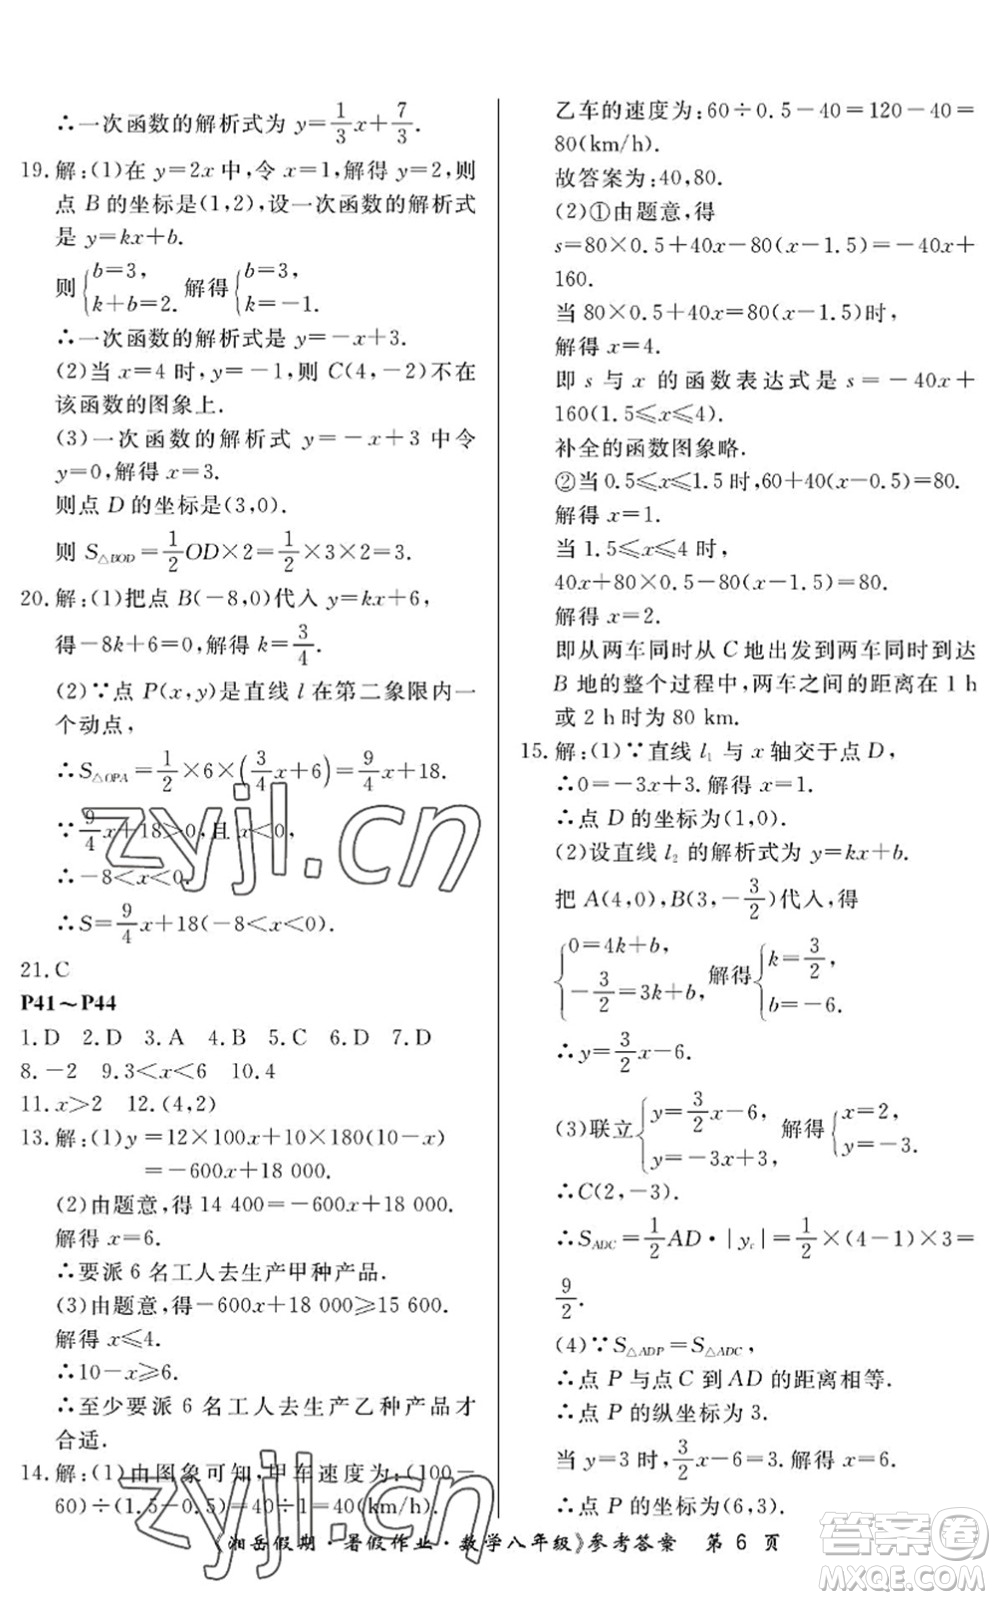 ∴一次函数的解析式为 y=1/3x+7/3.
19.解:(1)在 y=2x 中,令 x=1,解得 y=2,则
点 B 的坐标是(1,2),设一次函数的解析式
是 y=kx+b.
则{b=3, k+b=2. 解得{b=3, k=-1.
∴一次函数的解析式是 y=-x+3.
(2)当 x=4 时,y=-1,则 C(4,-2)不在
该函数的图象上.
(3)一次函数的解析式 y=-x+3 中令
y=0,解得 x=3.
则点 D 的坐标是(3,0).
则 S△BOD=1/2OD×2=1/2×3×2=3.
20.解:(1)把点 B(-8,0)代入 y=kx+6,
得-8k+6=0,解得 k=3/4.
(2)∵点 P(x,y)是直线 l 在第二象限内一
个动点,
∴S△OPA=1/2×6×(3/4x+6)=9/4x+18.
∵9/4x+18>0,且 x<0,
∴-8<x<0,
∴S=9/4x+18(-8<x<0).
21.C
P41～P44
1.D 2.D 3.A 4.B 5.C 6.D 7.D
8.-2 9.3<x<6 10.4
11.x>2 12.(4,2)
13.解:(1)y=12×100x+10×180(10-x)
=-600x+18 000.
(2)由题意,得 14 400=-600x+18 000.
解得 x=6.
∴要派 6 名工人去生产甲种产品.
(3)由题意,得-600x+18 000≥15 600.
解得 x≤4.
∴10-x≥6.
∴至少要派 6 名工人去生产乙种产品才
合适.
14.解:(1)由图象可知,甲车速度为:(100-
60)÷(1.5-0.5)=40÷1=40(km/h).
乙车的速度为:60÷0.5-40=120-40=
80(km/h).
故答案为:40,80.
(2)①由题意,得
s=80×0.5+40x-80(x-1.5)=-40x+
160.
当 80×0.5+40x=80(x-1.5)时,
解得 x=4.
即 s 与 x 的函数表达式是 s=-40x+
160(1.5≤x≤4).
补全的函数图象略.
②当 0.5≤x≤1.5 时,60+40(x-0.5)=80.
解得 x=1.
当 1.5≤x≤4 时,
40x+80×0.5-80(x-1.5)=80.
解得 x=2.
即从两车同时从 C 地出发到两车同时到达
B 地的整个过程中,两车之间的距离在 1 h
或 2 h 时为 80 km.
15.解:(1)∵直线 l₁ 与 x 轴交于点 D,
∴0=-3x+3.解得 x=1.
∴点 D 的坐标为(1,0).
(2)设直线 l₂ 的解析式为 y=kx+b.
把 A(4,0),B(3,-3/2)代入,得
{0=4k+b, -3/2=3k+b, 解得{k=3/2, b=-6.
∴y=3/2x-6.
(3)联立{y=3/2x-6, y=-3x+3, 解得{x=2, y=-3.
∴C(2,-3).
∴S_ADC=1/2AD·|y_c|=1/2×(4-1)×3=
9/2.
(4)∵S△ADP=S△ADC,
∴点 P 与点 C 到 AD 的距离相等.
∴点 P 的纵坐标为 3.
当 y=3 时,3/2x-6=3.解得 x=6.
∴点 P 的坐标为(6,3).
《湘岳假期·暑假作业·数学八年级》参考答案 第 6 页
zyjl.cn
zyjl.cn
作业精灵